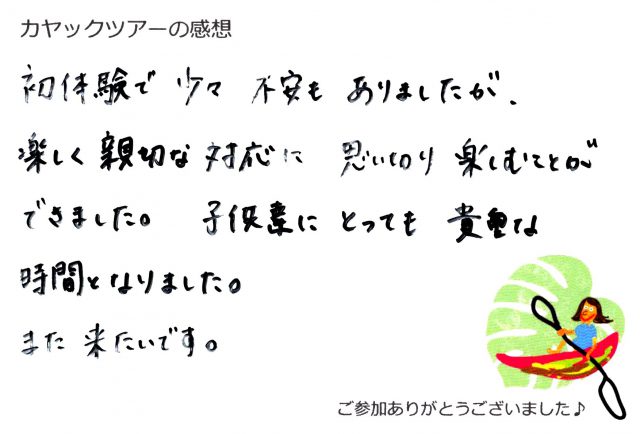 カヤックツアーの感想
初体験で少々不安もありましたが、
楽しく親切な対応に思い切り楽しむことが
できました。子供達にとっても貴重な
時間となりました。
また来たいです。
ご参加ありがとうございました♪